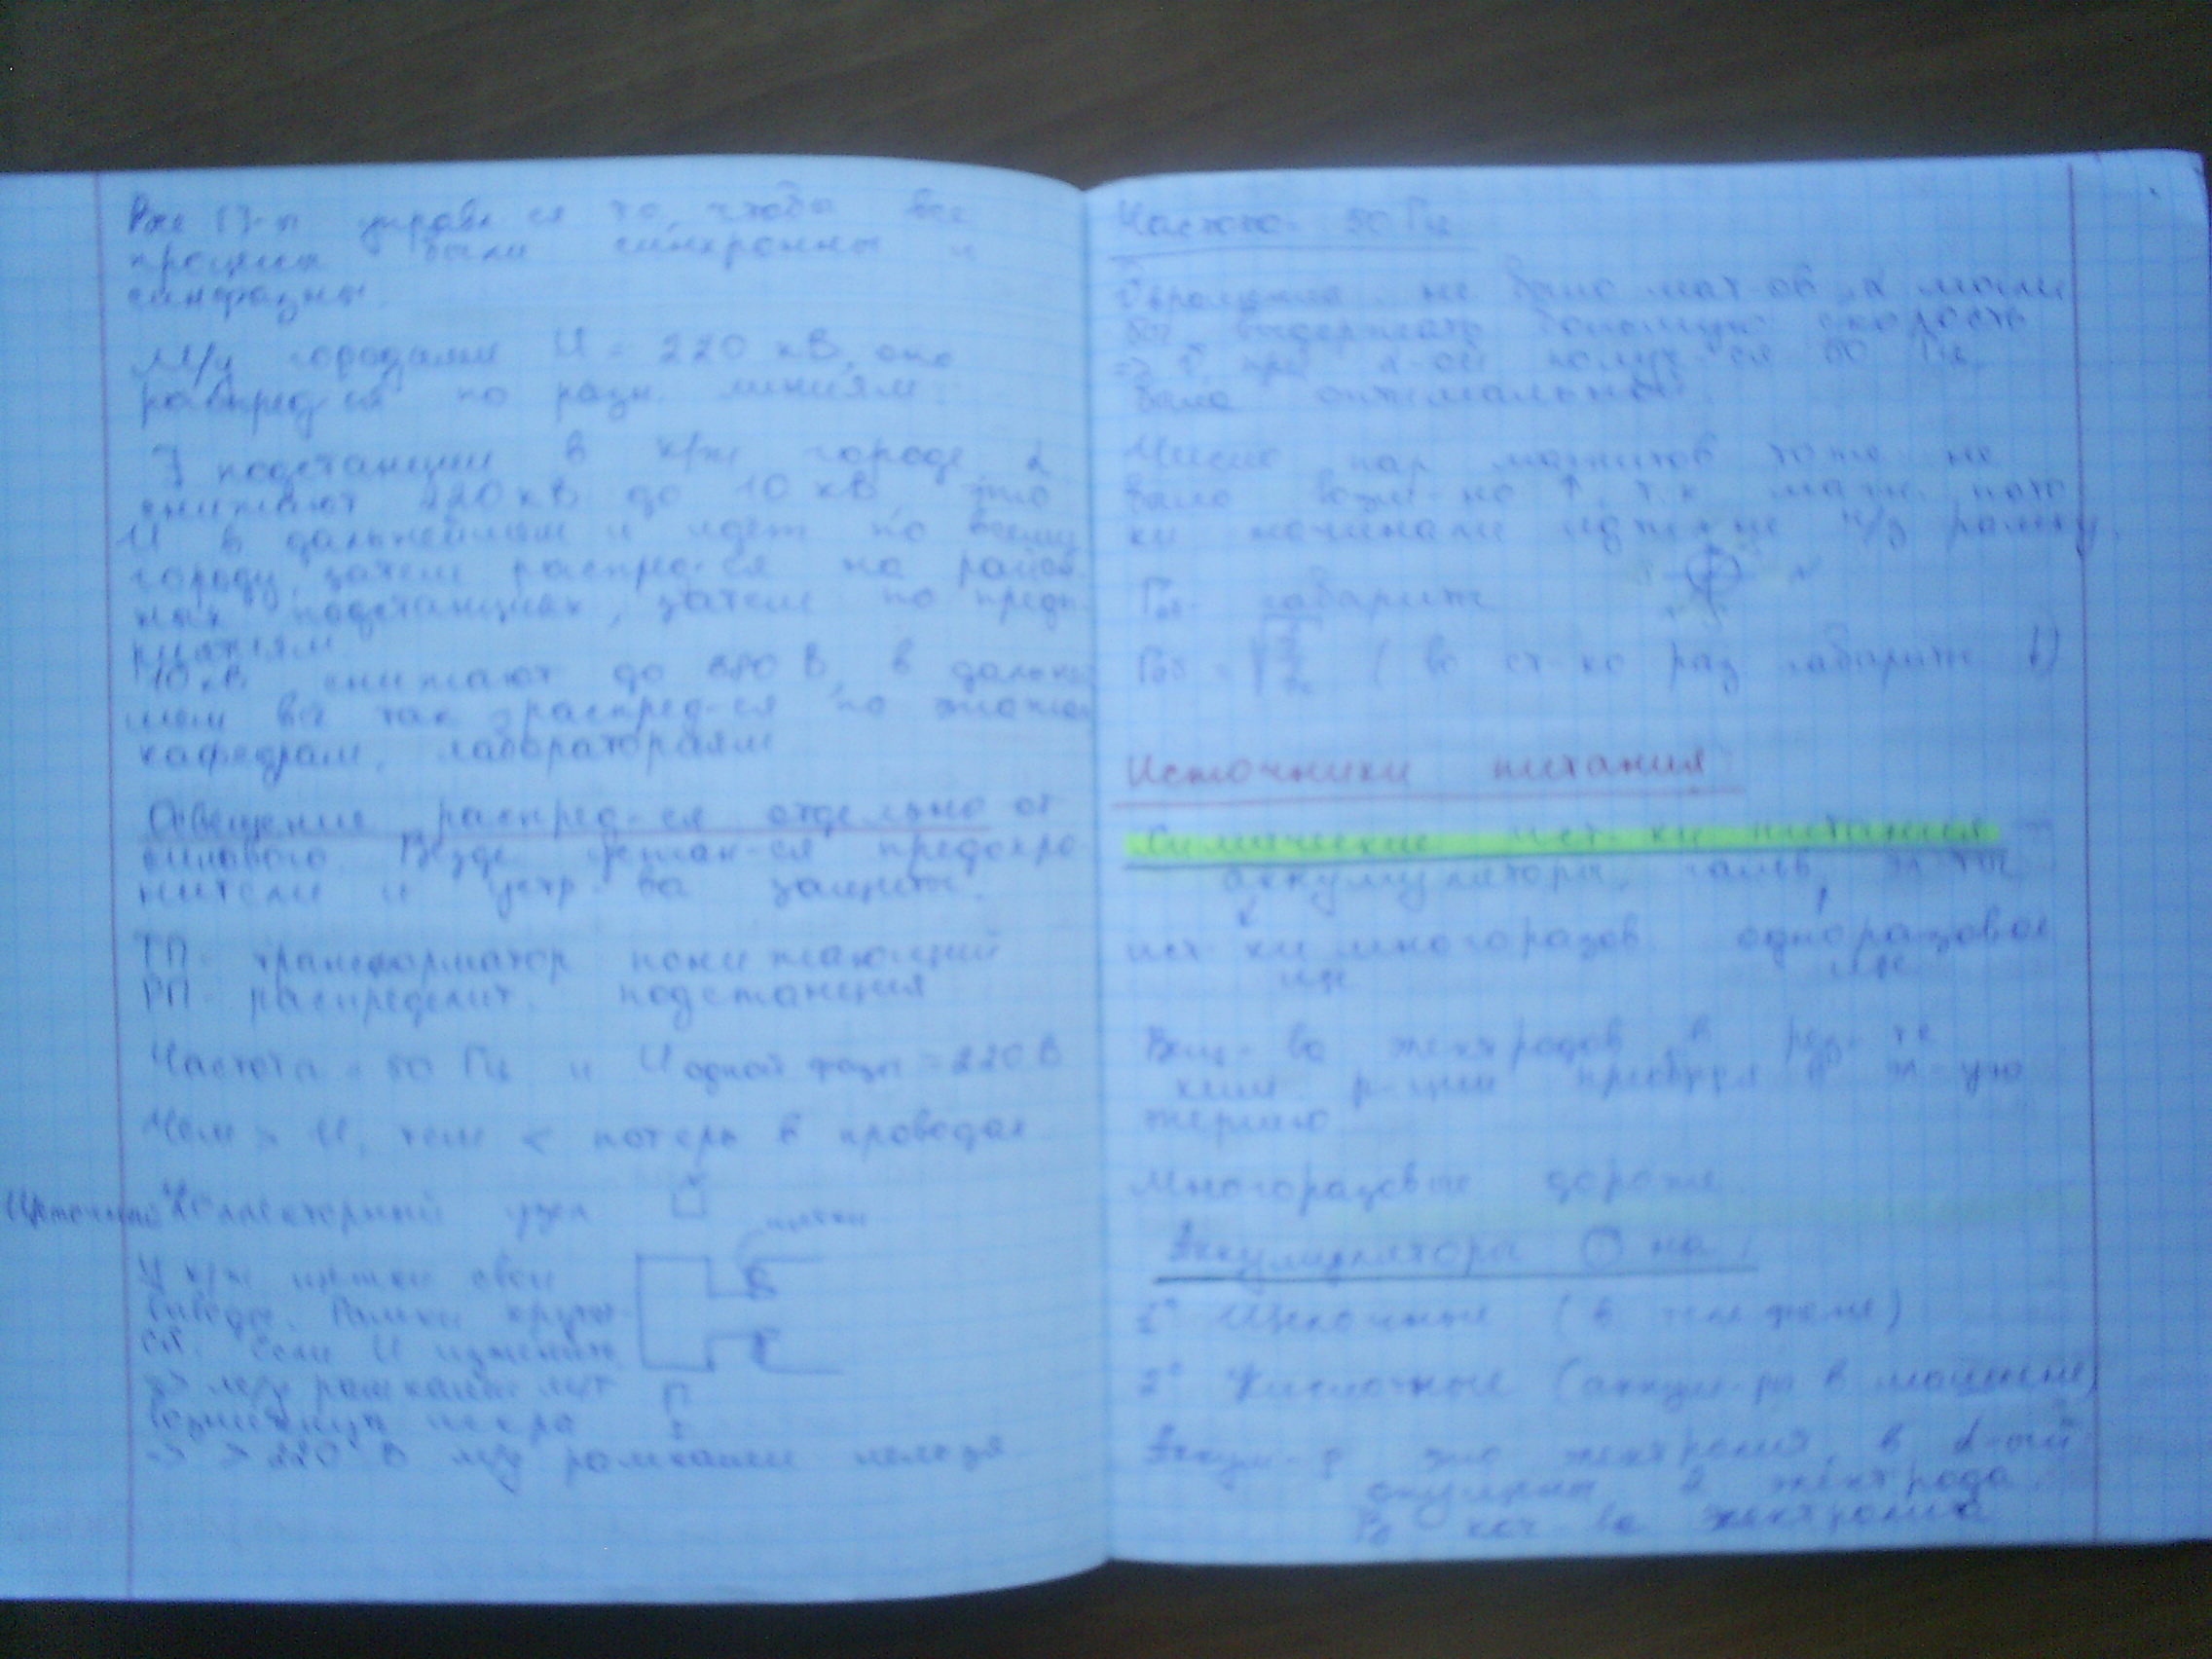 то, чтобы все
были синхронны и
синфазны.
М/у городами U = 220 кВ, оно
распред-ся по разн. линиям.
∃ подстанции в к/ж городе, α
снижают 220 кВ до 10 кВ, это
U в дальнейшем и идёт по всему
городу, затем распред-ся на район
ных подстанциях, затем по предп
риятиям
10 кВ снижают до 380 В, в дальней
шем всё так распред-ся по этажам
кафедрам, лабораториям
Освещение распред-ся отдельно от
силового. Везде предохра
нители и устр-ва защиты.
ТП - трансформатор понижающий
РП - распределит. подстанция
Частота = 50 Гц и U одной фазы = 220 В
Чем > U, тем < потерь в проводах
Щёточно коллекторный узел
щётки
У к/ж щётки свои
выводы. Рамки
Если U
=> м/у рамками
возникнуть искра
=> > 220 В м/у рамками нельзя
Частота - 50 Гц
не было мат-ов, α могли
бы выдержать большую скорость
=> при α-ой получ-ся 50 Гц,
была оптимальной.
Число пар магнитов тоже не
было возм-но ↑, т.к. магн. пото
ки начинали идти не ч/з рамку.
Габ - габариты
Габ = ( во ст-ко раз габариты ↓)
Источники питания
Химические ист-ки питания -
аккумуляторы, гальв. эл-ты
ист-ки многоразов. одноразовое
Вещ-во электродов в рез-те
хим. р-ции в эл-ую
энергию
Многоразовые дороже.
Аккумуляторы на:
1° Щелочные (в телефоне)
2° Кислотные (аккум-ры в машине)
Аккум-р это электролит, в α-ый
опущены 2 электрода.
В кач-ве электролита